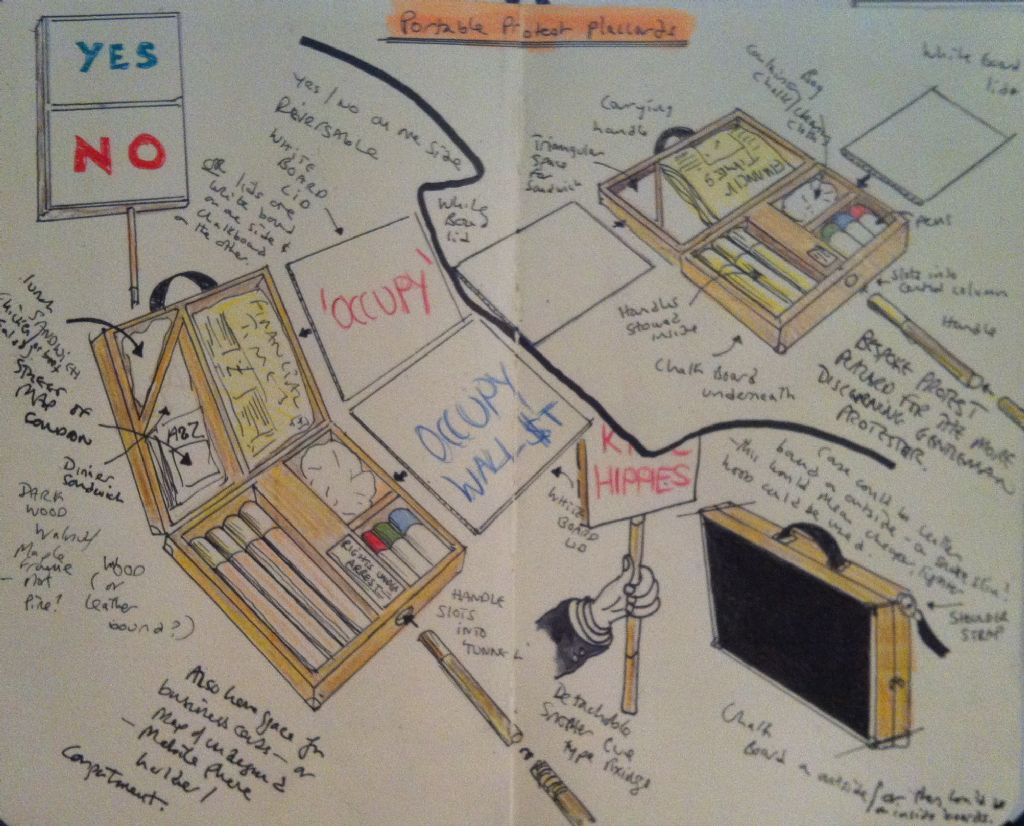 Portable Protest Placcards
YES
NO
Yes/No on one side
Reversable
WHITE
BOARD
LID
OR lids are
white board
on one side &
chalkboard
on the other.
White
Board
lid
'OCCUPY'
OCCUPY
WALL $T
WHITE
BOARD
LID
HIPPIES
Carrying
handle
Triangular
Space
for
Sandwich
Bag
containing
chalk/cleaning
cloth
White Board
lid
FINANCIAL
TIMES
Pens
Slots into
central column
Handle
Handles
stowed
inside
Chalk Board
underneath
BESPOKE PROTEST
FOR THE MORE
DISCERNING GENTLEMAN
PROTESTER.
Case could be leather
bound on outside
this would mean cheaper lighter
wood could be used
SHOULDER
STRAP
Chalk
Board on outside/or this could be
on inside boards.
Detachable
Snooker Cue
type fixings
HANDLE
SLOTS
INTO
'TUNNEL'
RIGHTS UNDER
ARREST
FINANCIAL
TIMES
A-Z
LUNCH
SANDWICH
STREET
MAP OF
LONDON
Dinner
Sandwich
DARK
WOOD
Walnut/
Maple
- Not
Pine?
WOOD
(or
Leather
bound?)
Also have space for
business cards - or
Map of underground
- Mobile phone
holder/
Compartment.